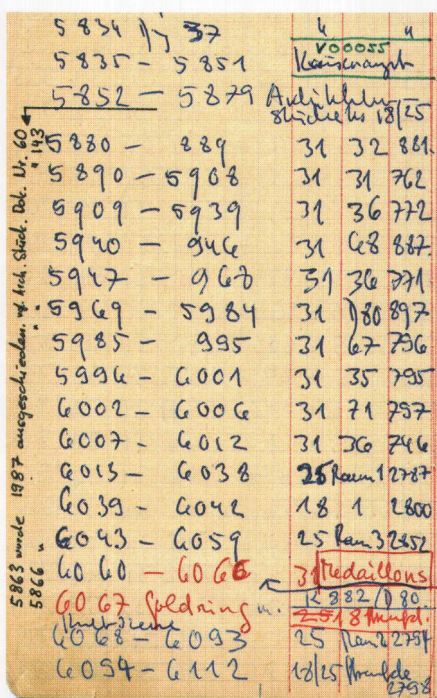 5834 37 " "
V00055
5835 - 5851
5852 - 5879 18/25
5880 - 889 31 32 881.
5890 - 5908 31 31 762
5909 - 5939 31 36 772
5940 - 946 31 68 887.
5947 - 968 31 36 771
5969 - 5984 31 D80 897
5985 - 995 31 67 796
5996 - 6001 31 35 795
6002 - 6006 31 71 797
6007 - 6012 31 36 746
6013 - 6038 25 Raum 1 2787
6039 - 6042 18 1 2800
6043 - 6059 25 Raum 3 2852
6060 - 6066 31 Medaillons
6067 Goldring K 882 / D80
6068 - 6093 25 Raum 2 2794
6094 - 6112 18/25 2798
5863 wurde 1987 ausgeschieden. Arch. Stück. Dok. Nr. 60
5866 " " " 143